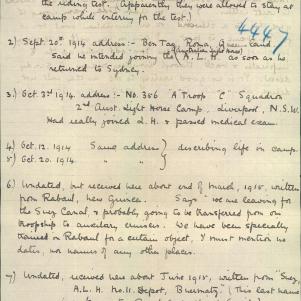 the riding test. (Apparently they were allowed to stay at
camp while entering for the test.)
4447
2) Sept. 20th 1914 address :- Ben Tag, Roma, Queensland
(Australian Light Horse)
Said he intended joining the A.L.H. as soon as he
returned to Sydney.
3.) Oct. 3rd 1914 address :- No. 356 "A Troop "C" Squadron
2nd Aust. Light Horse Camp, Liverpool, N.S.W.
Had really joined L.H. & passed medical exam.
4) Oct. 12. 1914 Same address } describing life in camp.
5) Oct. 20. 1914 " "
6) Undated, but received here about end of March, 1915, written
from Rabaul, New Guinea. Says "we are leaving for
the Suez Canal, & probably going to be transferred from our
troopship to auxiliary cruisers. We have been specially
trained in Rabaul for a certain object, I must mention no
dates, nor names of any other places.
7) Undated, received here about June 1915, written from "Suez,
A.L.H. No. 11. Depot, (This last name